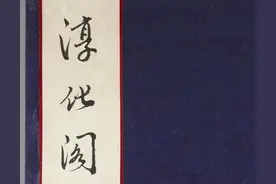 淳化阁